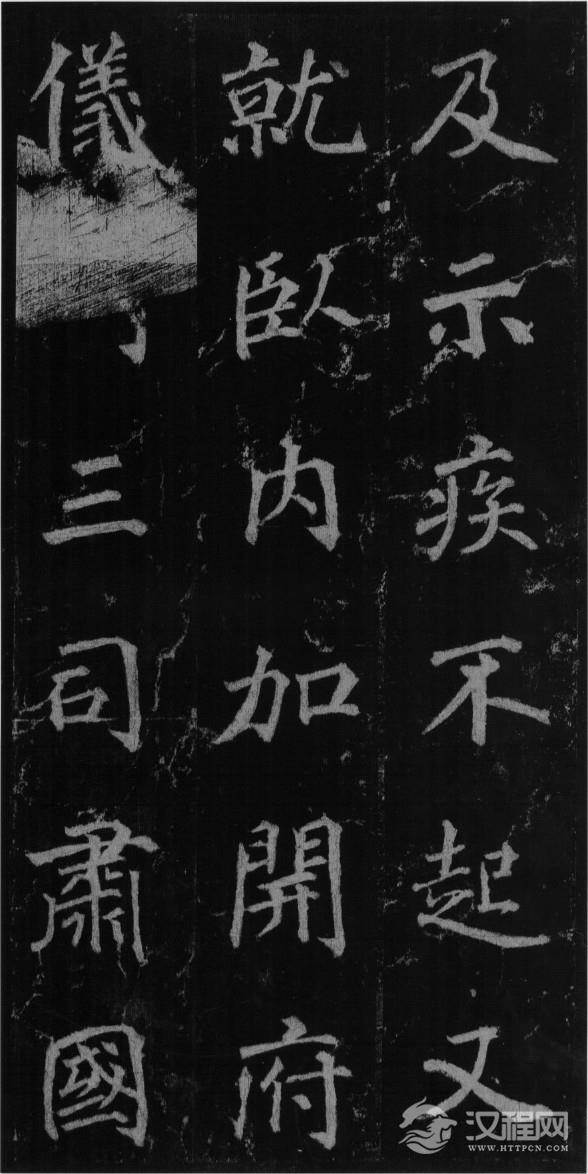 及示疾不起又
就臥内加開府
儀三司肅國
汉程网
WWW.HTTPCN.COM